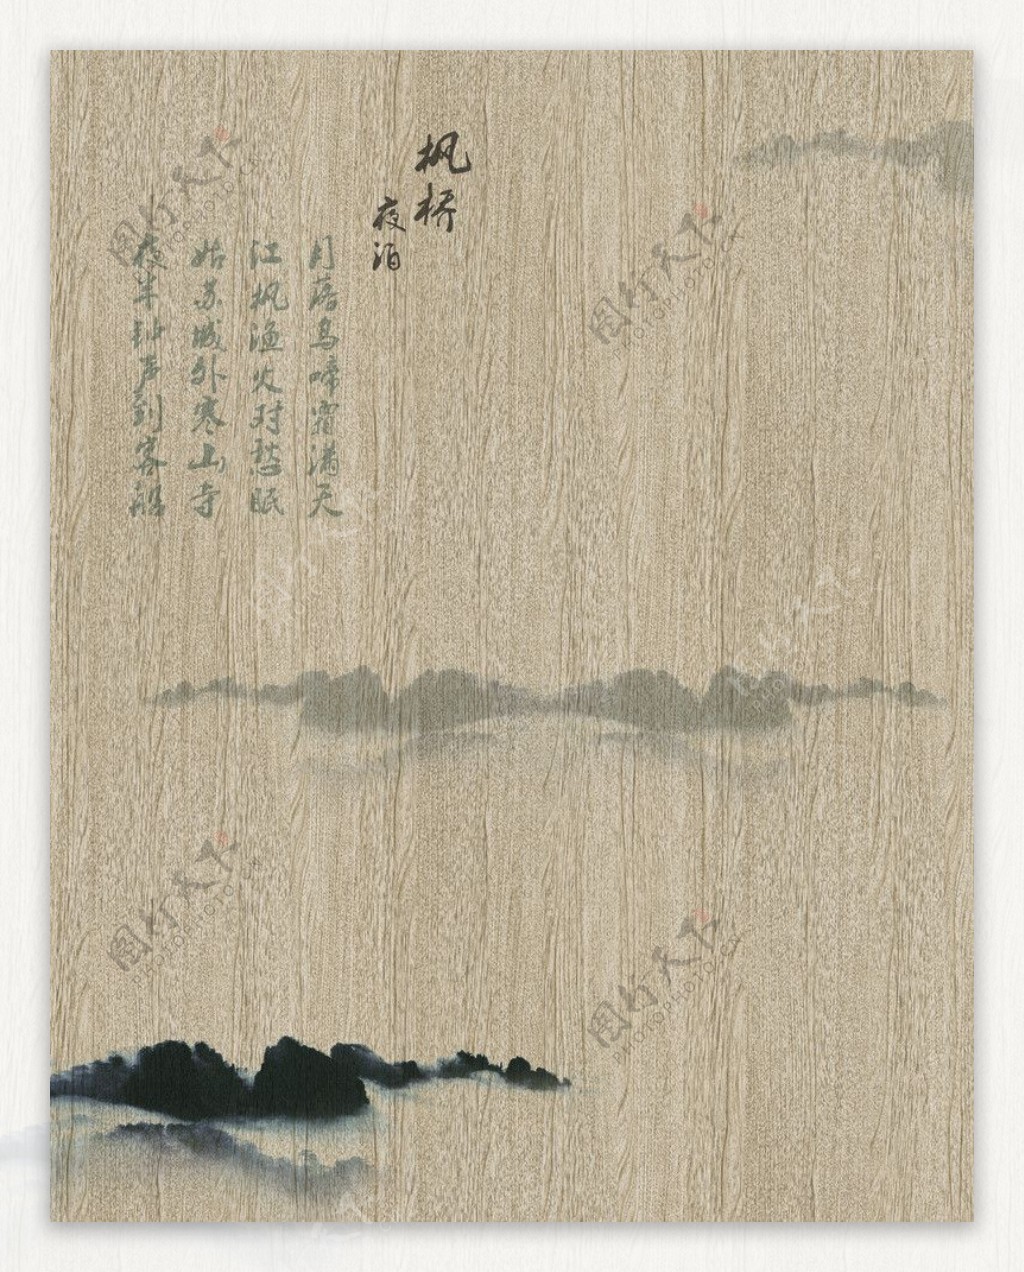 枫桥
夜泊
月落乌啼霜满天
江枫渔火对愁眠
姑苏城外寒山寺
夜半钟声到客船
图行天下
PHOTOPHOTO.CN
图行天下
PHOTOPHOTO.CN
图行天下
PHOTOPHOTO.CN
图行天下
PHOTOPHOTO.CN